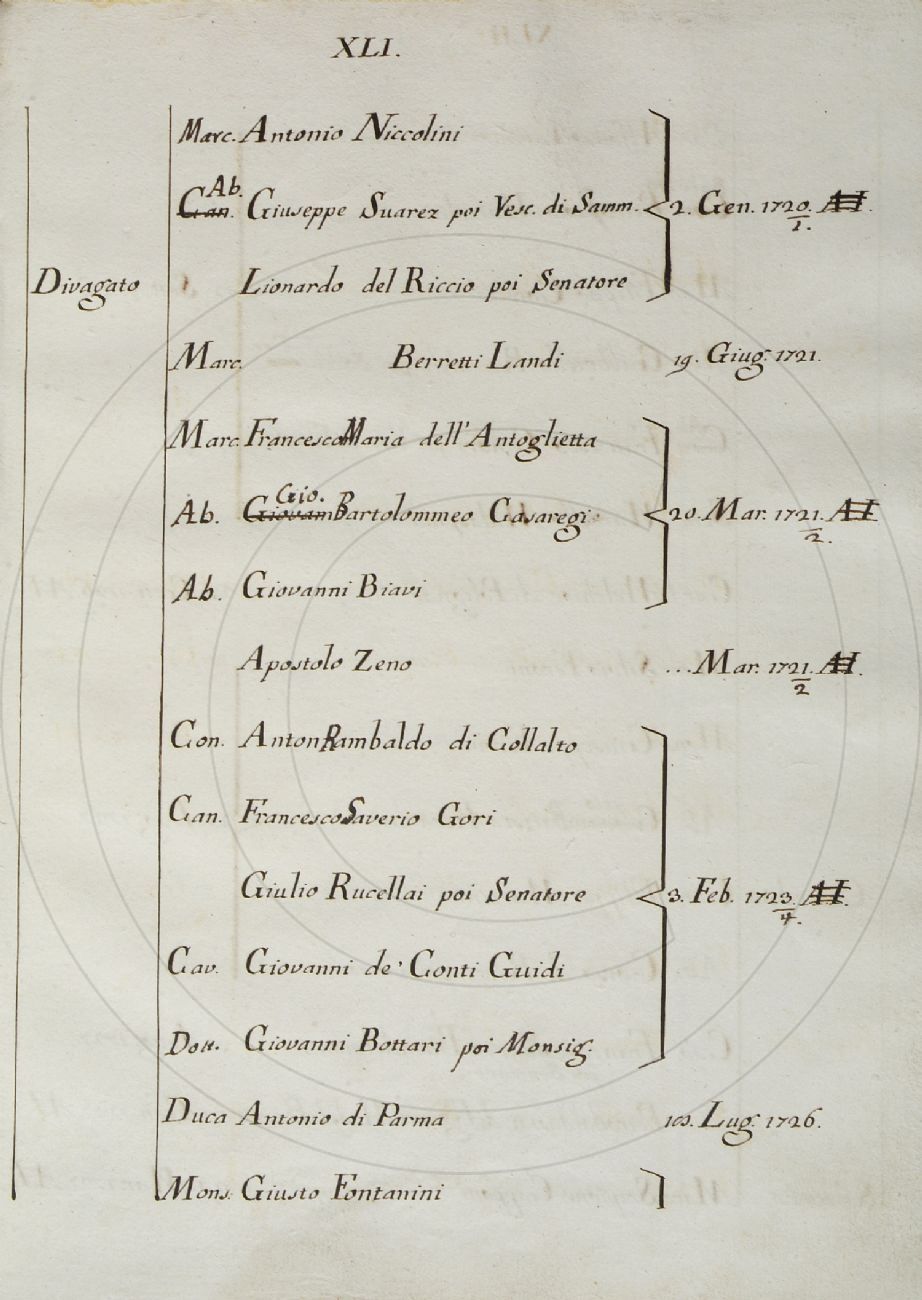 XLI.
Marc. Antonio Niccolini
Ab.
Can. Giuseppe Suarez poi Vesc. di Samm. 2. Gen. 1720/1. AI.
Divagato Lionardo del Riccio poi Senatore
Marc. Berretti Landi 19. Giug. 1721.
Marc. Francesco Maria dell'Antoglietta
Gio.
Ab. Giovam Bartolommeo Casaregi 20. Mar. 1721/2. AI
Ab. Giovanni Biavi
Apostolo Zeno ... Mar. 1721/2. AI.
Con. Anton Rambaldo di Collalto
Can. Francesco Saverio Gori
Giulio Rucellai poi Senatore 3. Feb. 1723/4. AI.
Cav. Giovanni de' Conti Guidi
Dott. Giovanni Bottari poi Monsig.
Duca Antonio di Parma Lug. 1726.
Mons. Giusto Fontanini